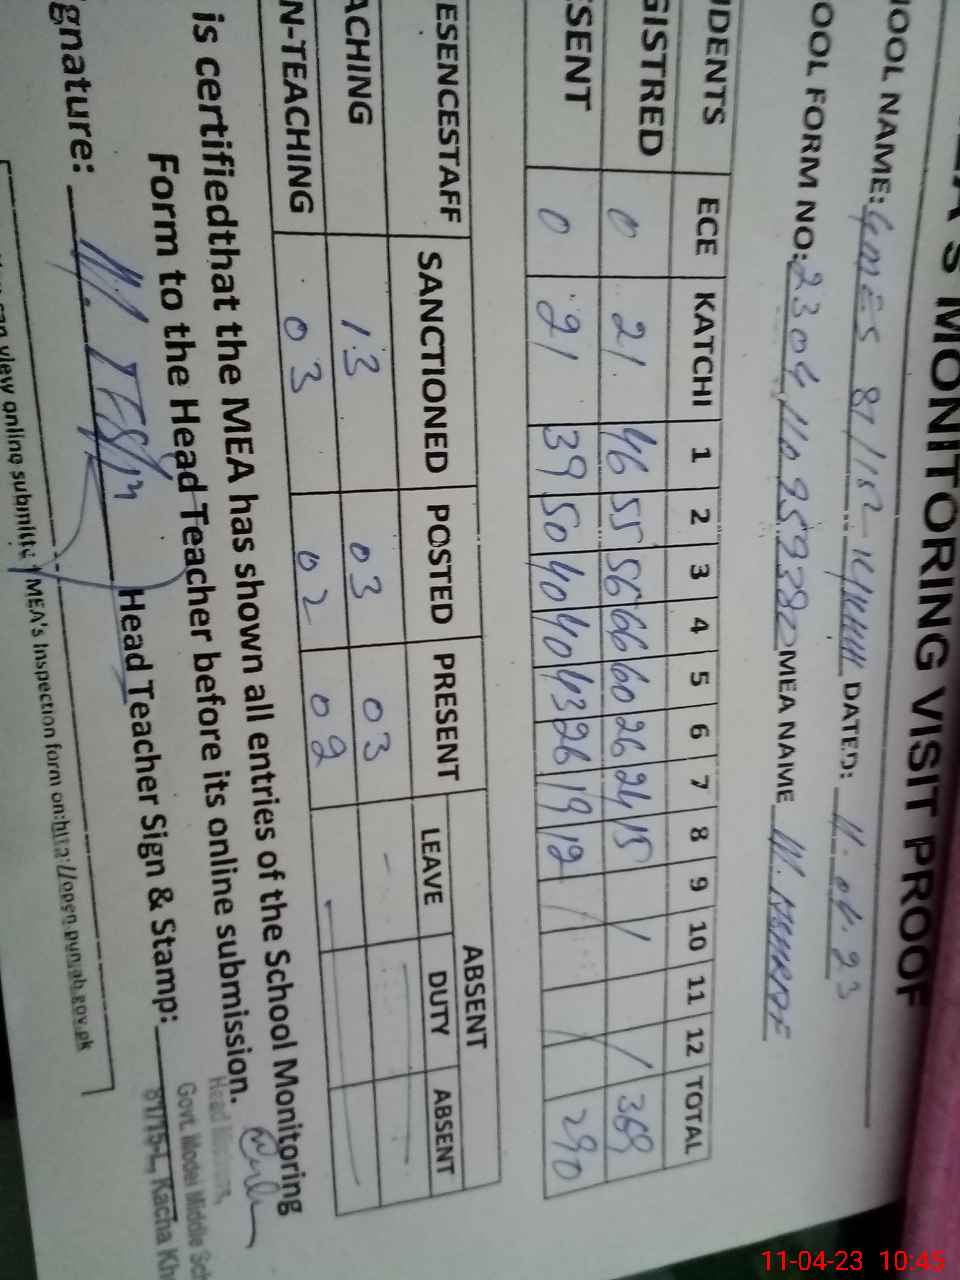 A'S MONITORING VISIT PROOF
HOOL NAME: GMES 81/15-L DATED: 11.04.23
OOL FORM NO: MEA NAME M.
UDENTS ECE KATCHI 1 2 3 4 5 6 7 8 9 10 11 12 TOTAL
GISTRED 0 21 46 55 56 66 60 26 24 15 / / 369
SENT 0 21 39 50 40 40 43 26 19 12 / / 290
ESENCESTAFF SANCTIONED POSTED PRESENT ABSENT
LEAVE DUTY ABSENT
ACHING 13 03 03 - - -
N-TEACHING 03 02 02 - - -
is certifiedthat the MEA has shown all entries of the School Monitoring
Form to the Head Teacher before its online submission.
gnature: Head Teacher Sign & Stamp:
Govt. Model Middle Sch
81/15-L, Kacha Kh
can view online submitted MEA's Inspection form on:http://open.punjab.gov.pk
11-04-23 10:45